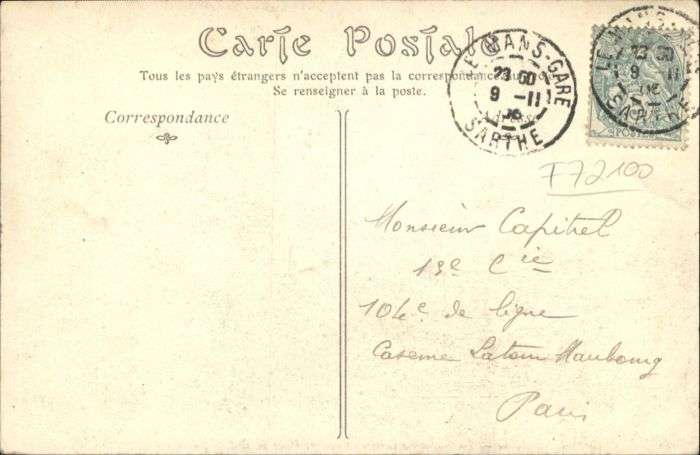 Carte Postale
Tous les pays étrangers n'acceptent pas la correspondance au
Se renseigner à la poste.
Correspondance
LE MANS-GARE
23 50
9 -11
SARTHE
LE MANS-GARE
23 50
9 -11
06
SARTHE
POSTES
F72100
Monsieur Capitrel
13e Cie
104e de ligne
Caserne Latour Maubourg
Paris